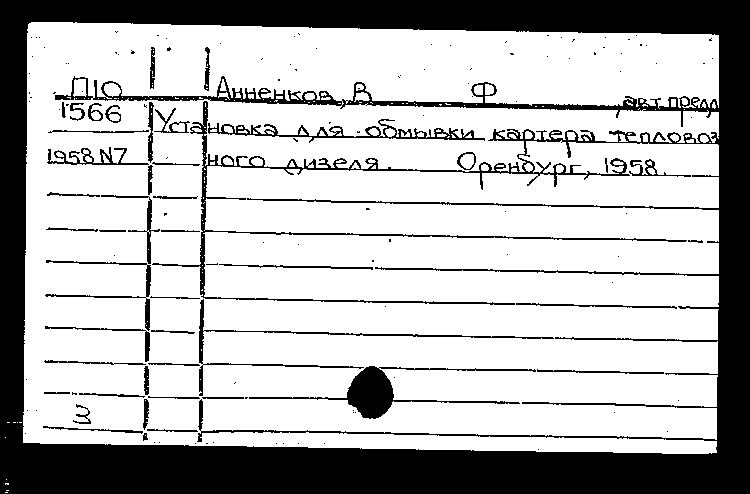 П10 Анненков, В Ф , авт. предл
1566 Установка для обмывки картера тепловоз
1958 N7 ного дизеля. Оренбург, 1958.